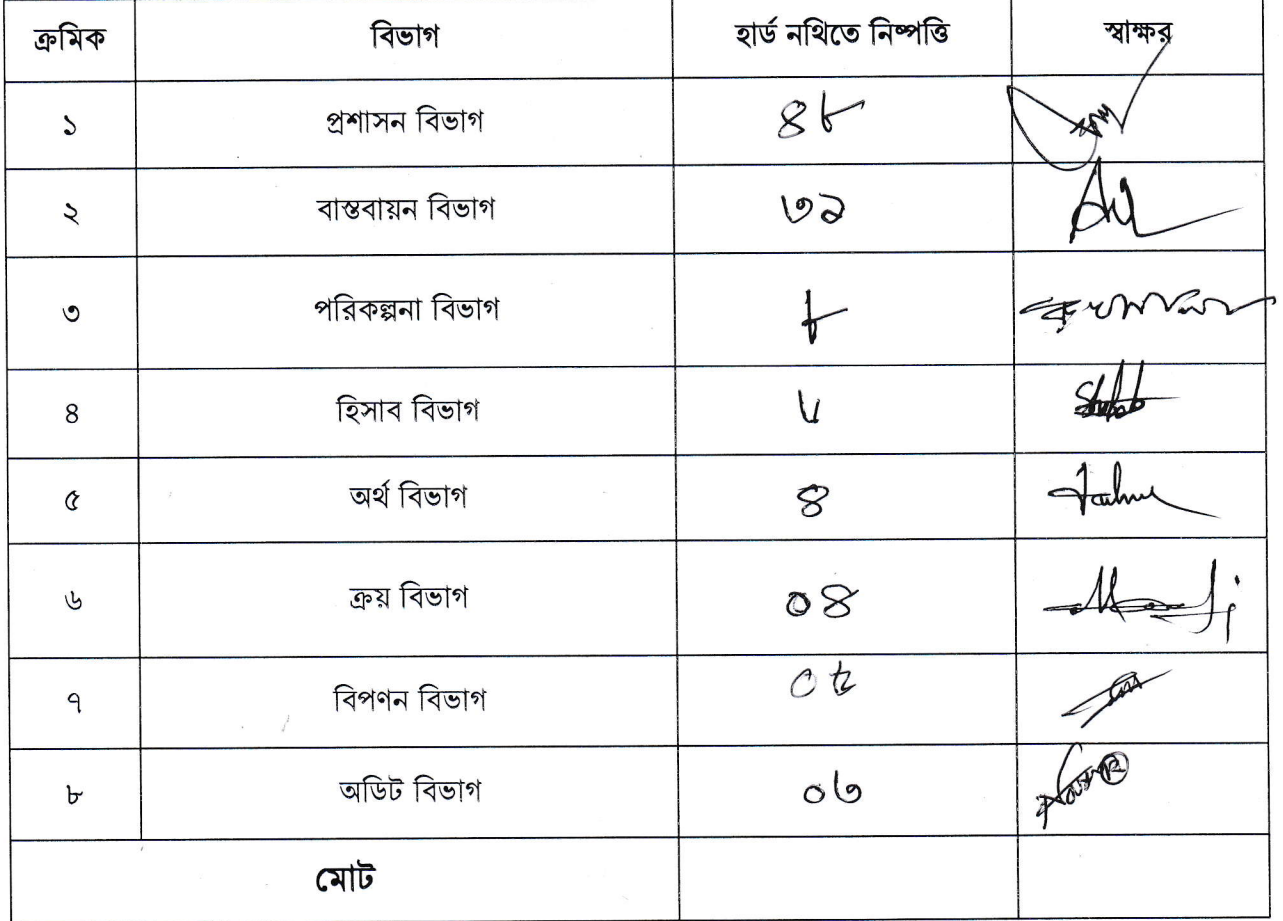 ক্রমিক বিভাগ হার্ড নথিতে নিষ্পত্তি স্বাক্ষর
১ প্রশাসন বিভাগ ৪৮
২ বাস্তবায়ন বিভাগ ৩৯
৩ পরিকল্পনা বিভাগ ৮
৪ হিসাব বিভাগ
৫ অর্থ বিভাগ ৪
৬ ক্রয় বিভাগ ০৪
৭ বিপণন বিভাগ
৮ অডিট বিভাগ ০৬
মোট